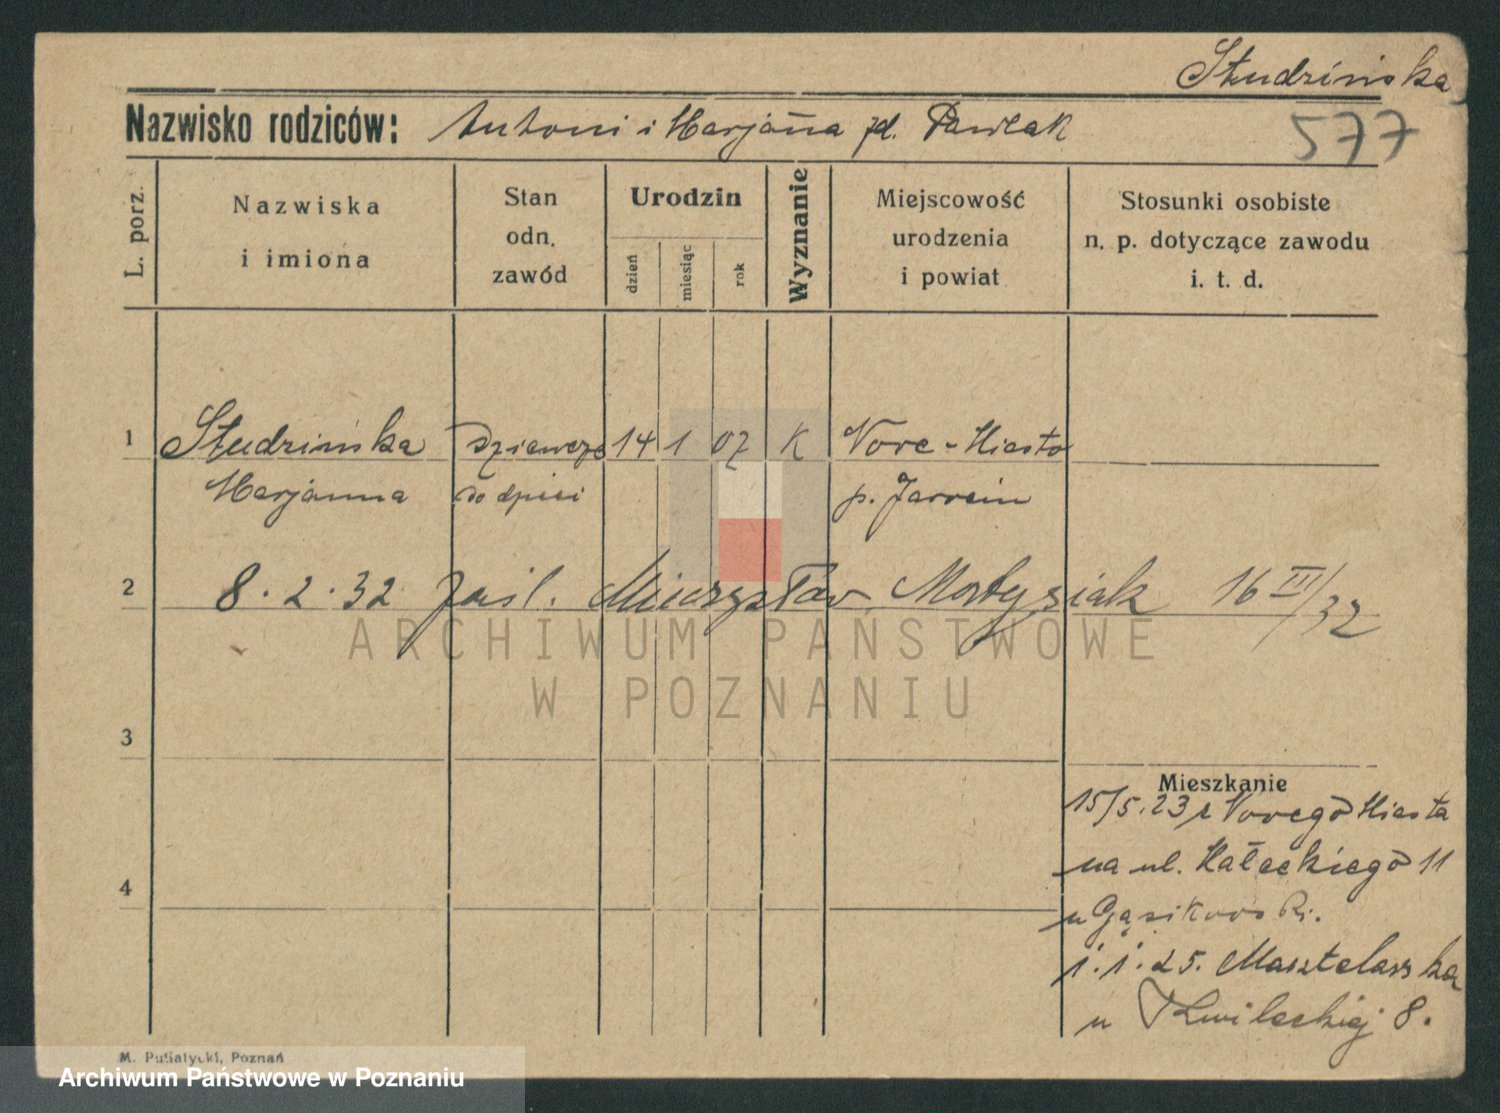 Studzińska
Nazwisko rodziców: Antoni i Marjanna zd. Pawlak
577
L. porz.
Nazwiska
i imiona
Stan
odn.
zawód
Urodzin
dzień
miesiąc
rok
Wyznanie
Miejscowość
urodzenia
i powiat
Stosunki osobiste
n. p. dotyczące zawodu
i. t. d.
1 Studzińska dziewczę 14 1 07 K Nowe-Miasto
Marjanna do dzieci p. Jarocin
2 8.2.32 Mieczysław Matysiak 16 III/32
ARCHIWUM PAŃSTWOWE
W POZNANIU
3
Mieszkanie
15/5.23 z Nowego Miasta
4
na ul. Małeckiego 11
u Gąsikowski.
1.1.25. Masztelarska
u Kwileckiej 8.
M. Pusiatycki, Poznań
Archiwum Państwowe w Poznaniu